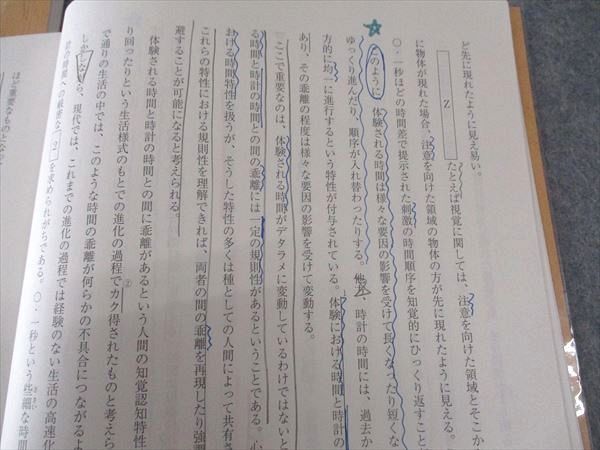 ど先に現れたように見え易い。
Z
たとえば視覚に関しては、注意を向けた領域とそこか
に物体が現れた場合、注意を向けた領域の物体の方が先に現れたように見える。
〇・一秒ほどの時間差で提示された刺激の時間順序を知覚的にひっくり返すこと
このように、体験される時間は様々な要因の影響を受けて長くなったり短くな
ゆっくり進んだり、順序が入れ替わったりする。他方、時計の時間には、過去か
方的に均一に進行するという特性が付与されている。体験における時間と時計の
あり、その乖離の程度は様々な要因の影響を受けて変動する。
ここで重要なのは、体験される時間がデタラメに変動しているわけではないと
る時間と時計の時間との間の乖離には一定の規則性があるということである。心
おける時間特性を扱うが、そうした特性の多くは種としての人間によって共有さ
これらの特性における規則性を理解できれば、両者の間の乖離を再現したり強調
避することが可能になると考えられる。
体験される時間と時計の時間との間に乖離があるという人間の知覚認知特性
り回ったりという生活様式のもとでの進化の過程で②カク得されたものと考えら
で通りの生活の中では、このような時間の乖離が何らかの不具合につながるよ
しかしながら、現代では、これまでの進化の過程では経験のない生活の高速化
計の時間への厳密な 2 を求められがちである。〇・一秒という些細な時間
ほど重要なものとなって